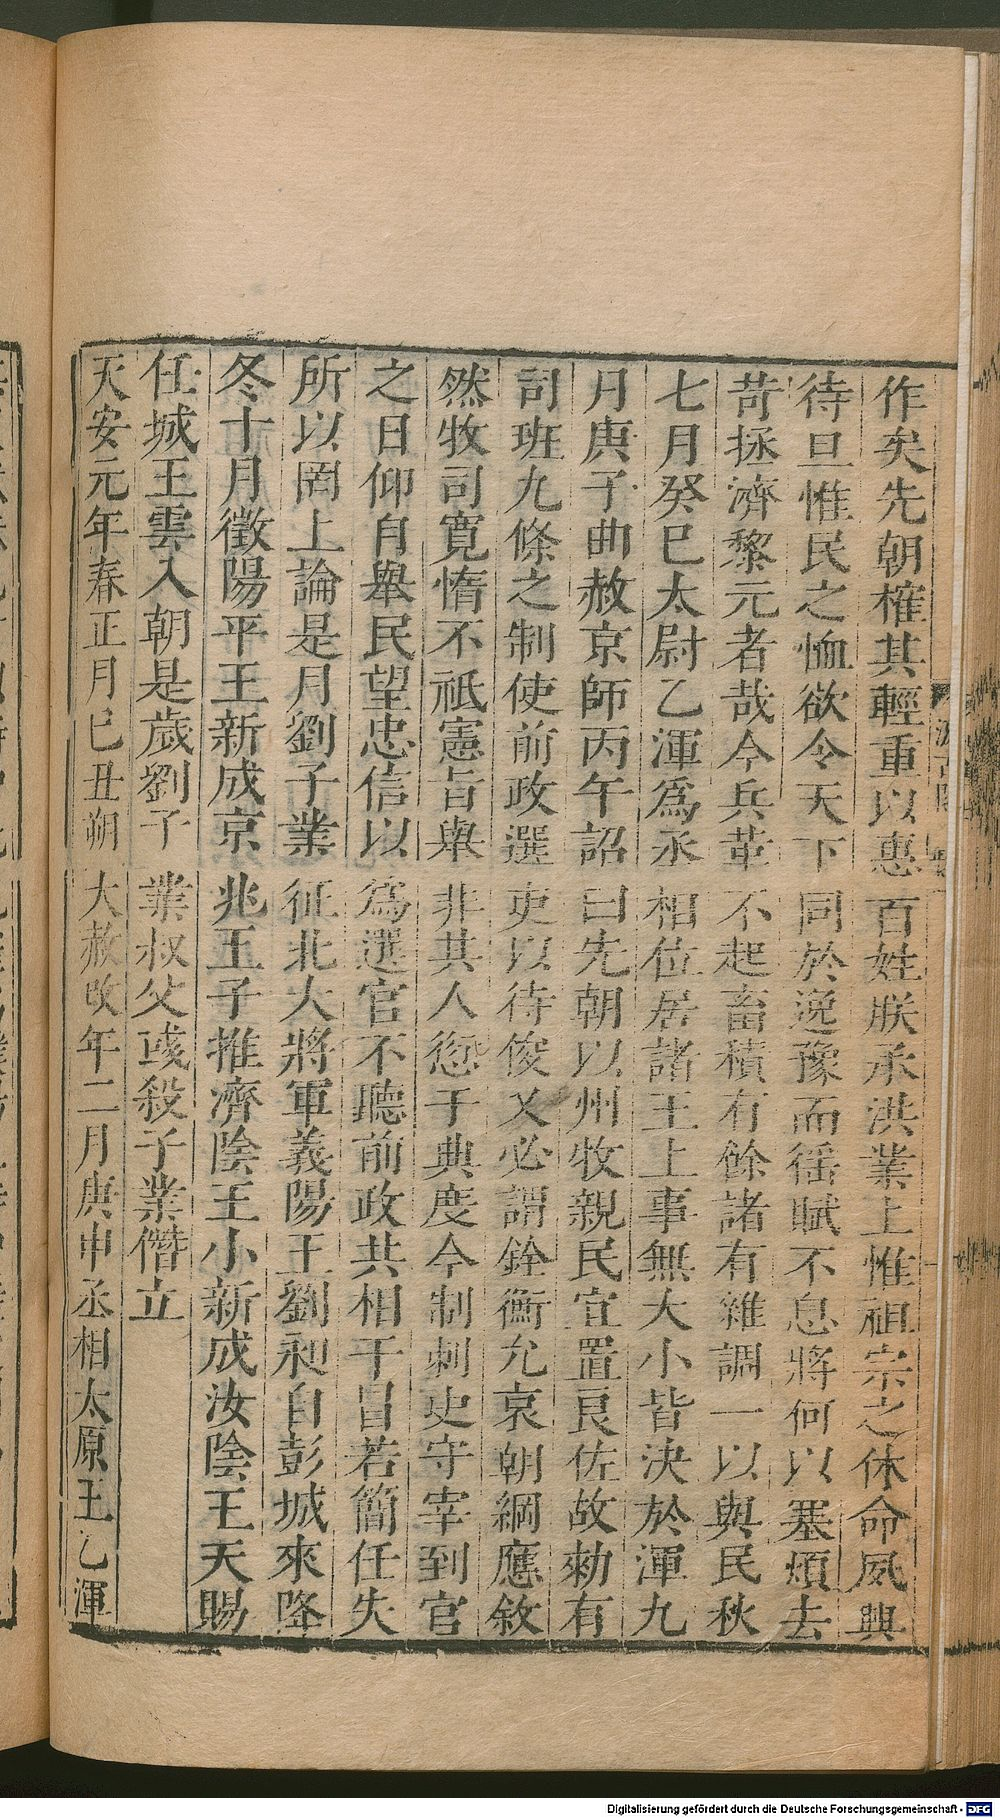 作矣先朝榷其輕重以惠百姓朕承洪業上惟祖宗之休命夙興
待旦惟民之恤欲令天下同於逸豫而徭賦不息將何以塞煩去
苛拯濟黎元者哉今兵革不起畜積有餘諸有雜調一以與民秋
七月癸巳太尉乙渾為丞相位居諸王上事無大小皆決於渾九
月庚子曲赦京師丙午詔曰先朝以州牧親民宜置良佐故勑有
司班九條之制使前政選吏以待俊乂必謂銓衡允哀朝綱應敘
然牧司寬惰不祗憲旨舉非其人愆于典度今制刺史守宰到官
之日仰自舉民望忠信以為選官不聽前政共相干冒若簡任失
所以罔上論是月劉子業征北大將軍義陽王劉昶自彭城來降
冬十月徵陽平王新成京兆王子推濟陰王小新成汝陰王天賜
任城王雲入朝是歲劉子業叔父彧殺子業僭立
天安元年春正月巳丑朔大赦改年二月庚申丞相太原王乙渾
Digitalisierung gefördert durch die Deutsche Forschungsgemeinschaft - DFG